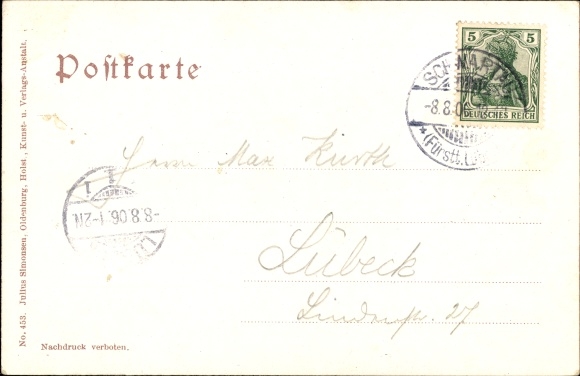 Postkarte
5 5
DEUTSCHES REICH
SCHWARTAU
-8.8.06
*(Fürstt.
Herrn Max Kurth
1
-8.8.06.1-2N.
Lübeck
Lindenstr. 27
Nachdruck verboten.
No. 453. Julius Simonsen, Oldenburg, Holst., Kunst- u. Verlags-Anstalt.